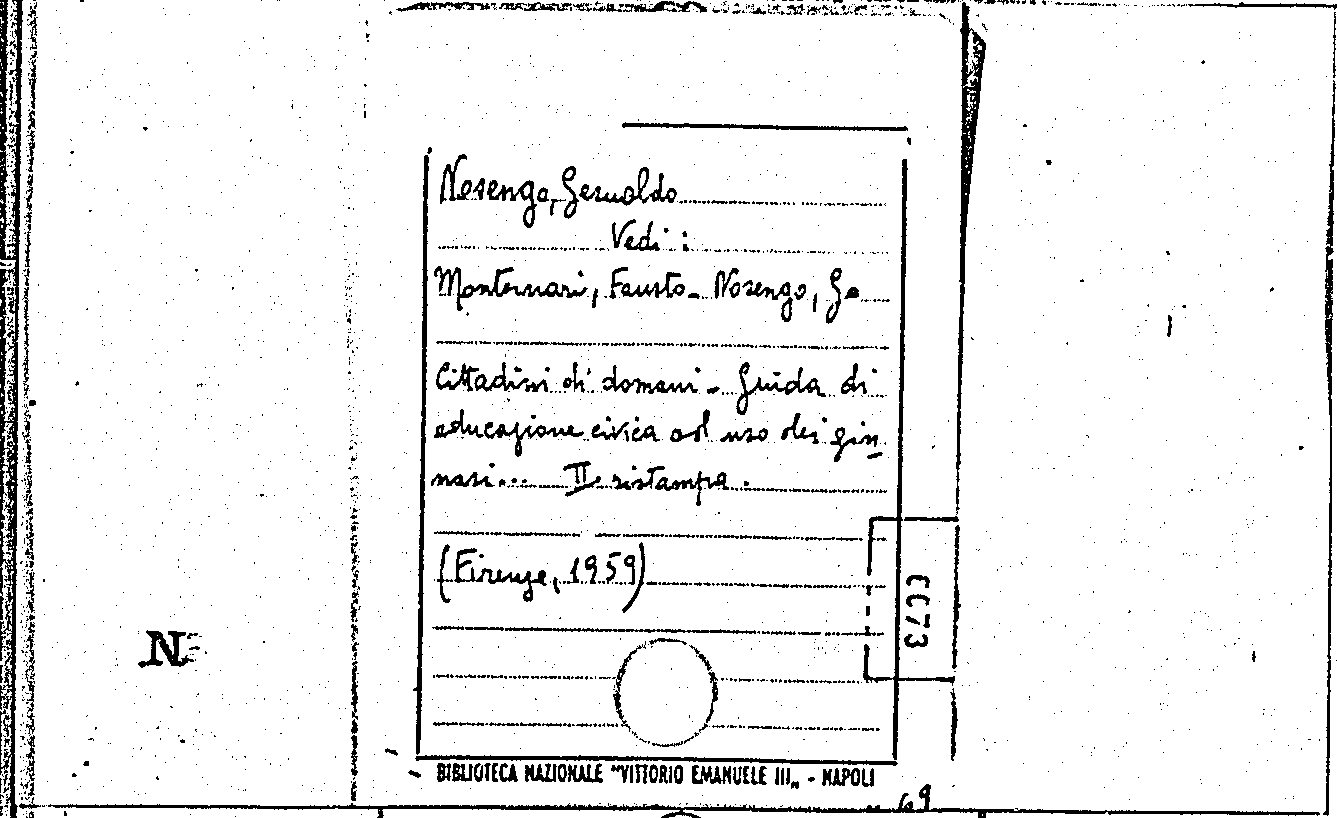 Nosengo, Gesualdo
Vedi :
Montanari, Fausto - Nosengo, Ge
Cittadini di domani - Guida di
educazione civica ad uso dei gin
nasi... II ristampa.
(Firenze, 1959)
CC73
N
BIBLIOTECA NAZIONALE "VITTORIO EMANUELE III„ - NAPOLI
69